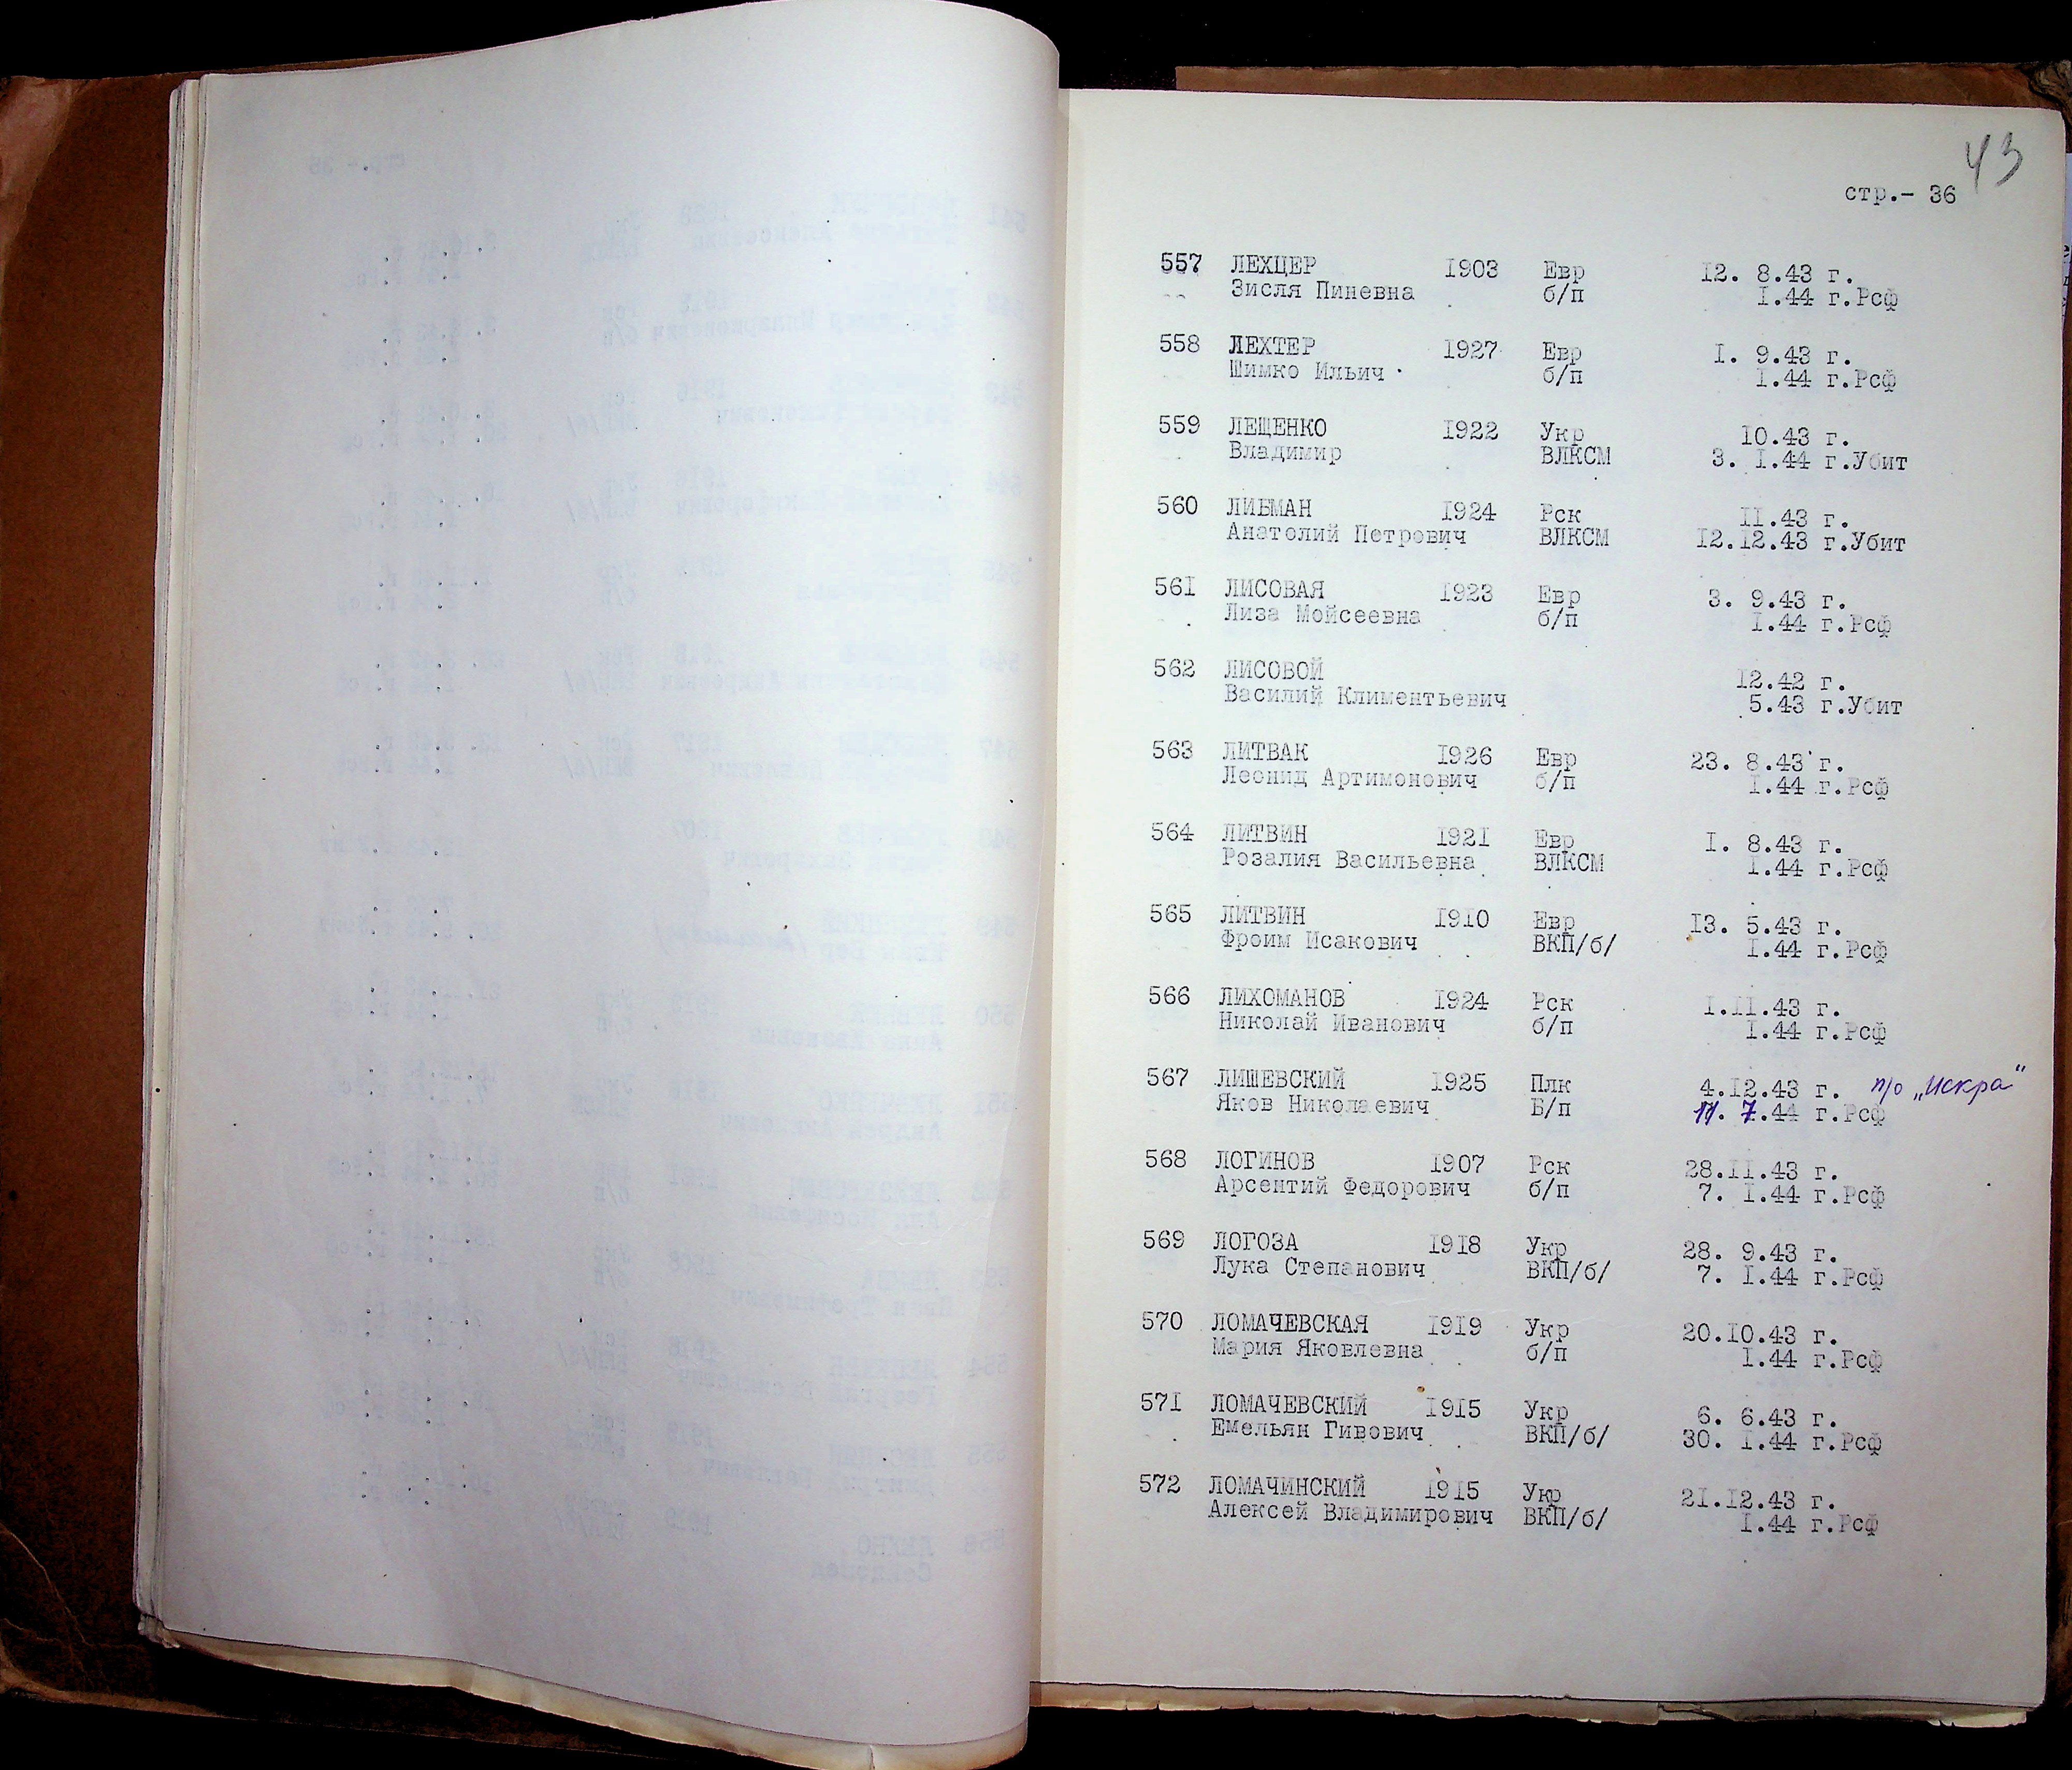 43
стр.- 36
557 ЛЕХЦЕР 1903 Евр 12. 8.43 г.
Зисля Пиневна б/п I.44 г.Рсф
558 ЛЕХТЕР 1927 Евр I. 9.43 г.
Шимко Ильич б/п I.44 г.Рсф
559 ЛЕЩЕНКО 1922 Укр 10.43 г.
Владимир ВЛКСМ 3. I.44 г.Убит
560 ЛИБМАН 1924 Рск II.43 г.
Анатолий Петрович ВЛКСМ I2.I2.43 г.Убит
561 ЛИСОВАЯ 1923 Евр 3. 9.43 г.
Лиза Мойсеевна б/п I.44 г.Рсф
562 ЛИСОВОЙ I2.42 г.
Василий Климентьевич 5.43 г.Убит
563 ЛИТВАК 1926 Евр 23. 8.43 г.
Леонид Артимонович б/п I.44 г.Рсф
564 ЛИТВИН 1921 Евр I. 8.43 г.
Розалия Васильевна ВЛКСМ I.44 г.Рсф
565 ЛИТВИН 1910 Евр I3. 5.43 г.
Фроим Исакович ВКП/б/ I.44 г.Рсф
566 ЛИХОМАНОВ 1924 Рск I.II.43 г.
Николай Иванович б/п I.44 г.Рсф
567 ЛИШЕВСКИЙ 1925 Плк 4.I2.43 г. п/о „Искра"
Яков Николаевич Б/п 11. 7.44 г.Рсф
568 ЛОГИНОВ 1907 Рск 28.II.43 г.
Арсентий Федорович б/п 7. I.44 г.Рсф
569 ЛОГОЗА 1918 Укр 28. 9.43 г.
Лука Степанович ВКП/б/ 7. I.44 г.Рсф
570 ЛОМАЧЕВСКАЯ 1919 Укр 20.I0.43 г.
Мария Яковлевна б/п I.44 г.Рсф
571 ЛОМАЧЕВСКИЙ 1915 Укр 6. 6.43 г.
Емельян Гивович ВКП/б/ 30. I.44 г.Рсф
572 ЛОМАЧИНСКИЙ 1915 Укр 21.I2.43 г.
Алексей Владимирович ВКП/б/ I.44 г.Рсф